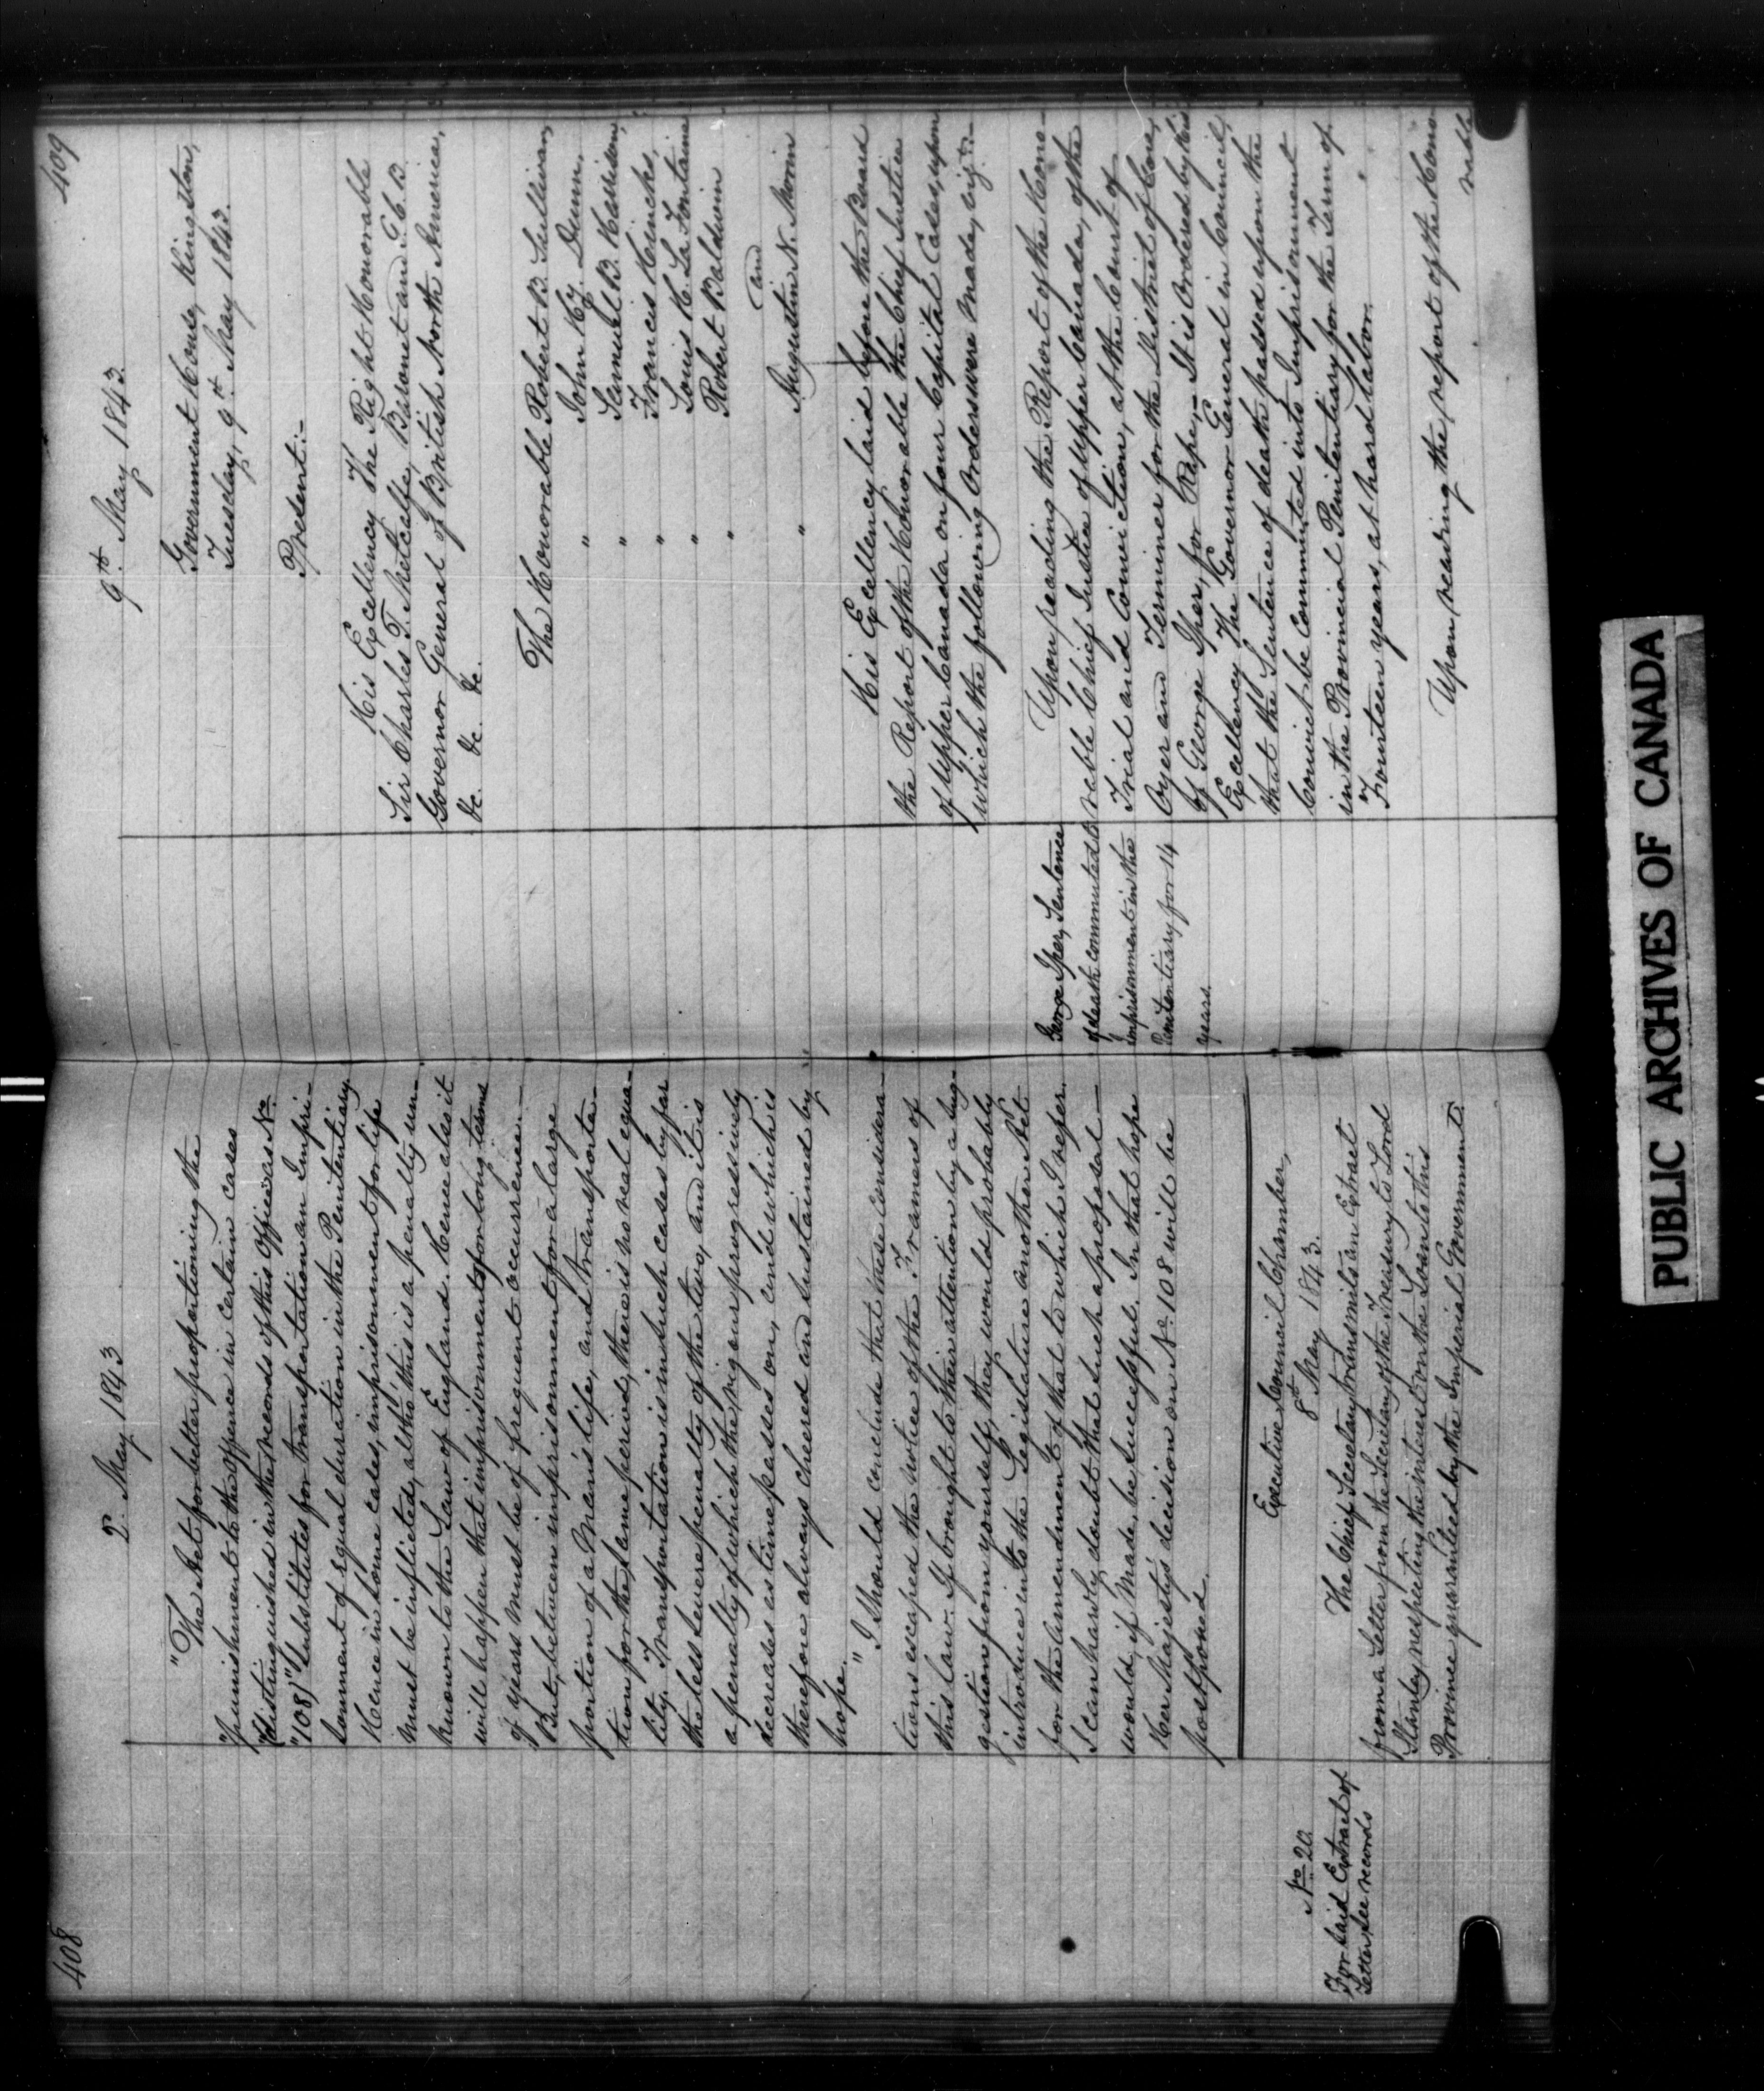 408
2. May 1843
"The Act for better proportioning the
"punishment to the offence in certain cases
"(distinguished in the records of this Office as No.
"108)" substitutes for transportation an Impri-
sonment of equal duration in the Penitentiary.
Hence in some cases, imprisonment for life
must be inflicted, altho' this is a penalty un-
known to the Law of England. Hence also it
will happen that imprisonments for long terms
of years must be of frequent occurrence.—
But, between imprisonment for a large
portion of a Man's life, and transporta-
tion for the same period, there is no real equa-
lity. Transportation is in such cases by far
the less severe penalty of the two, and it is
a penalty of which the rigour progressively
decreases as time passes on, and which is
therefore always cheered and sustained by
hope.
" I should conclude that these considera-
tions escaped the notice of the Framers of
this law. If brought to their attention by a sug-
gestion from yourself, they would probably
introduce into the Legislature another Act
for the amendment of that to which I refer.
I can hardly doubt that such a proposal
would, if made, be successful. In that hope
Her Majesty's decision on No. 108 will be
postponed.
Executive Council Chamber,
8th May 1843.
No 20.
For said Extract of
Letter, see records
The Chief Secretary transmits an Extract
from a Letter from the Secretary of the Treasury to Lord
Stanley respecting the interest on the Loan to this
Province guaranteed by the Imperial Government.
409
9th May 1843.
Government House, Kingston,
Tuesday, 9th May 1843.
Present:—
His Excellency The Right Honorable
Sir Charles T. Metcalfe, Baronet and G.C.B.
Governor General of British North America,
&c. &c. &c.
The Honorable Robert B. Sullivan,
" John Hy. Dunn,
" Samuel B. Harrison,
" Francis Hincks,
" Louis H. La Fontaine
" Robert Baldwin
and
" Augustin N. Morin
His Excellency laid before the Board
the Report of the Honorable the Chief Justice
of Upper Canada on four Capital Cases, upon
which the following Orders were made, viz:—
George Iper, Sentence
of death commuted to
imprisonment in the
Penitentiary for 14
years.
Upon reading the Report of the Hono-
rable Chief Justice of Upper Canada, of the
Trial and Conviction, at the Court of
Oyer and Terminer for the District of Gore,
of George Iper, for Rape,— It is Ordered by His
Excellency The Governor General in Council,
that the Sentence of death passed upon the
Convict be Commuted into Imprisonment
in the Provincial Penitentiary for the Term of
Fourteen years, at hard labor.
Upon reading the report of the Hono-
rable
PUBLIC ARCHIVES OF CANADA